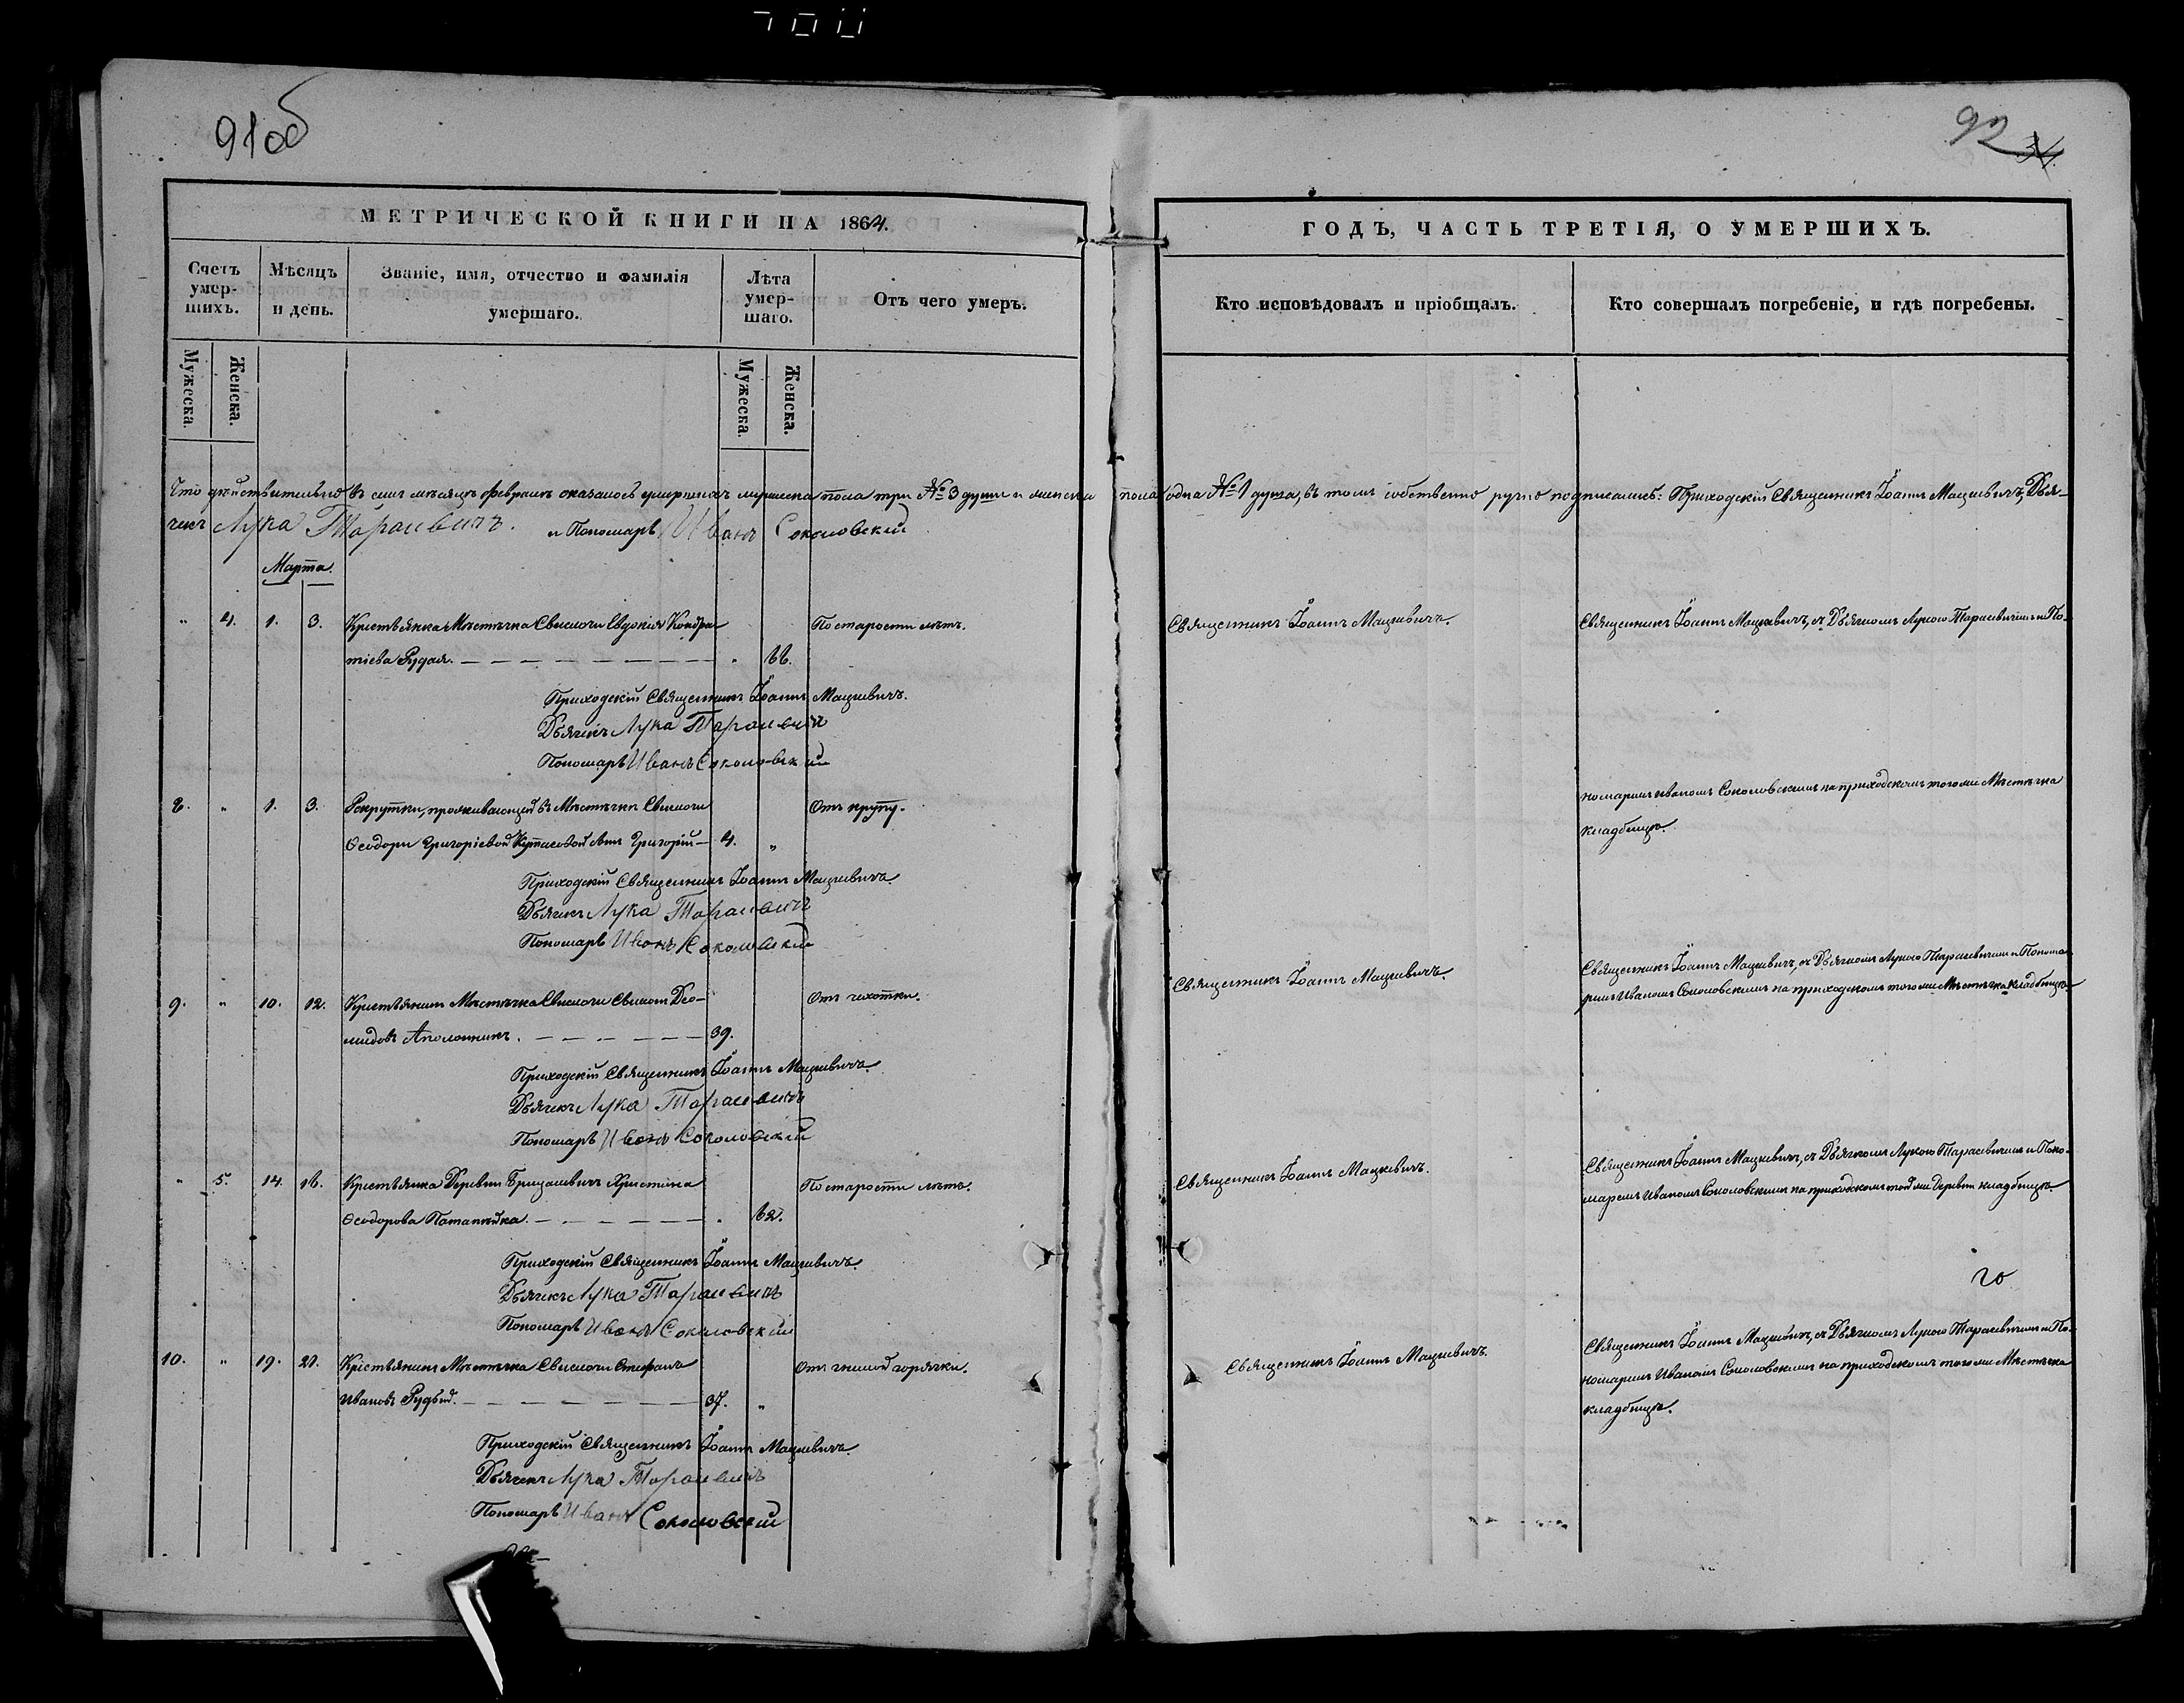 91об
92
34.
МЕТРИЧЕСКОЙ КНИГИ НА 1864.
ГОДЪ, ЧАСТЬ ТРЕТІЯ, О УМЕРШИХЪ.
Счетъ умер-шихъ.
Мѣсяцъ и день.
Званіе, имя, отчество и фамилія умершаго.
Лѣта умер-шаго.
Отъ чего умеръ.
Кто исповѣдовалъ и пріобщалъ.
Кто совершалъ погребеніе, и гдѣ погребены.
Мужеска.
Женска.
Мужеска.
Женска.
Что дѣйствительно въ семъ мѣсяцѣ февралѣ оказалось умершихъ мужеска пола три №3 души и женска пола одна №1 душа, въ томъ собственно ручно подписались: Приходскій Священникъ Іоаннъ Мацкевичъ, Дья-
чекъ Лука Тарасевичъ. и Пономарь Иванъ Соколовскій
Марта.
" 4. 1. 3. Крестьянка Мѣстечка Свислочи Евдокія Кондра- По старости лѣтъ. Священникъ Іоаннъ Мацкевичъ. Священникъ Іоаннъ Мацкевичъ, съ Дьячкомъ Лукою Тарасевичемъ и По-
тіева Рудая. " 66.
Приходскій Священникъ Іоаннъ Мацкевичъ.
Дьячекъ Лука Тарасевичъ
Пономарь Иванъ Соколовскій
8. " 1. 3. Рекрутки, проживающей въ Мѣстечкѣ Свислочи Отъ крупу. номаремъ Иваномъ Соколовскимъ на приходскомъ того же Мѣстечка
Ѳеодоры Григоріевой сынъ Григорій 4. " кладбищѣ.
Приходскій Священникъ Іоаннъ Мацкевичъ.
Дьячекъ Лука Тарасевичъ
Пономарь Иванъ Соколовскій
Священникъ Іоаннъ Мацкевичъ, съ Дьячкомъ Лукою Тарасевичемъ и Понома-
9. " 10. 12. Крестьянинъ Мѣстечка Свислочи Део- Отъ чахотки. Священникъ Іоаннъ Мацкевичъ. ремъ Иваномъ Соколовскимъ на приходскомъ того же Мѣстечка кладбищѣ.
мидовъ Аполонникъ. 39.
Приходскій Священникъ Іоаннъ Мацкевичъ.
Дьячекъ Лука Тарасевичъ
Пономарь Иванъ Соколовскій
" 5. 14. 16. Крестьянка Деревни Христина По старости лѣтъ. Священникъ Іоаннъ Мацкевичъ. Священникъ Іоаннъ Мацкевичъ, съ Дьячкомъ Лукою Тарасевичемъ и Поно-
Ѳеодорова " 62. маремъ Иваномъ Соколовскимъ на приходскомъ той же Деревни кладбищѣ.
Приходскій Священникъ Іоаннъ Мацкевичъ.
Дьячекъ Лука Тарасевичъ
Пономарь Иванъ Соколовскій
10. " 19. 21. Крестьянинъ Мѣстечка Свислочи Стефанъ Отъ гнилой горячки. Священникъ Іоаннъ Мацкевичъ. Священникъ Іоаннъ Мацкевичъ, съ Дьячкомъ Лукою Тарасевичемъ и По-
Ивановъ Рудый. 37. " номаремъ Иваномъ Соколовскимъ на приходскомъ того же Мѣстечка
кладбищѣ.
Приходскій Священникъ Іоаннъ Мацкевичъ.
Дьячекъ Лука Тарасевичъ
Пономарь Иванъ Соколовскій